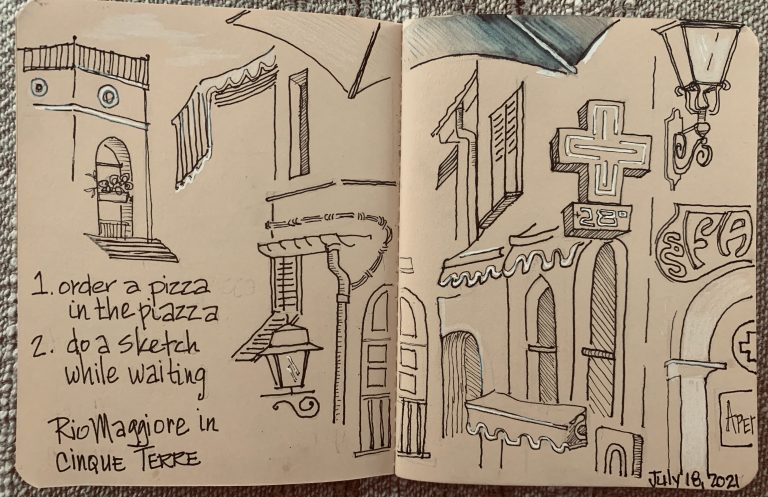 1. order a pizza
in the piazza
2. do a sketch
while waiting
RioMaggiore in
Cinque Terre
28°
FA
APER
July 18, 2021